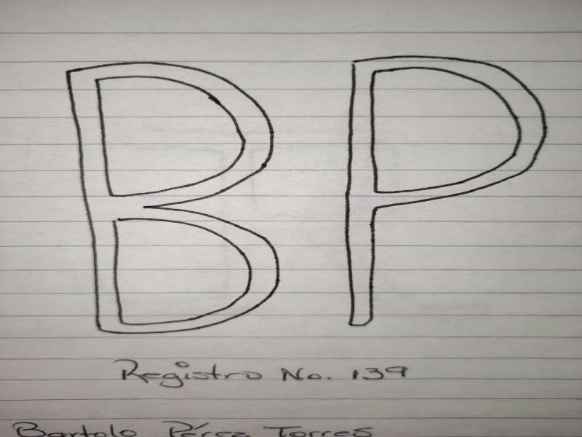 BP
Registro No. 139
Bartolo Pérez Torres